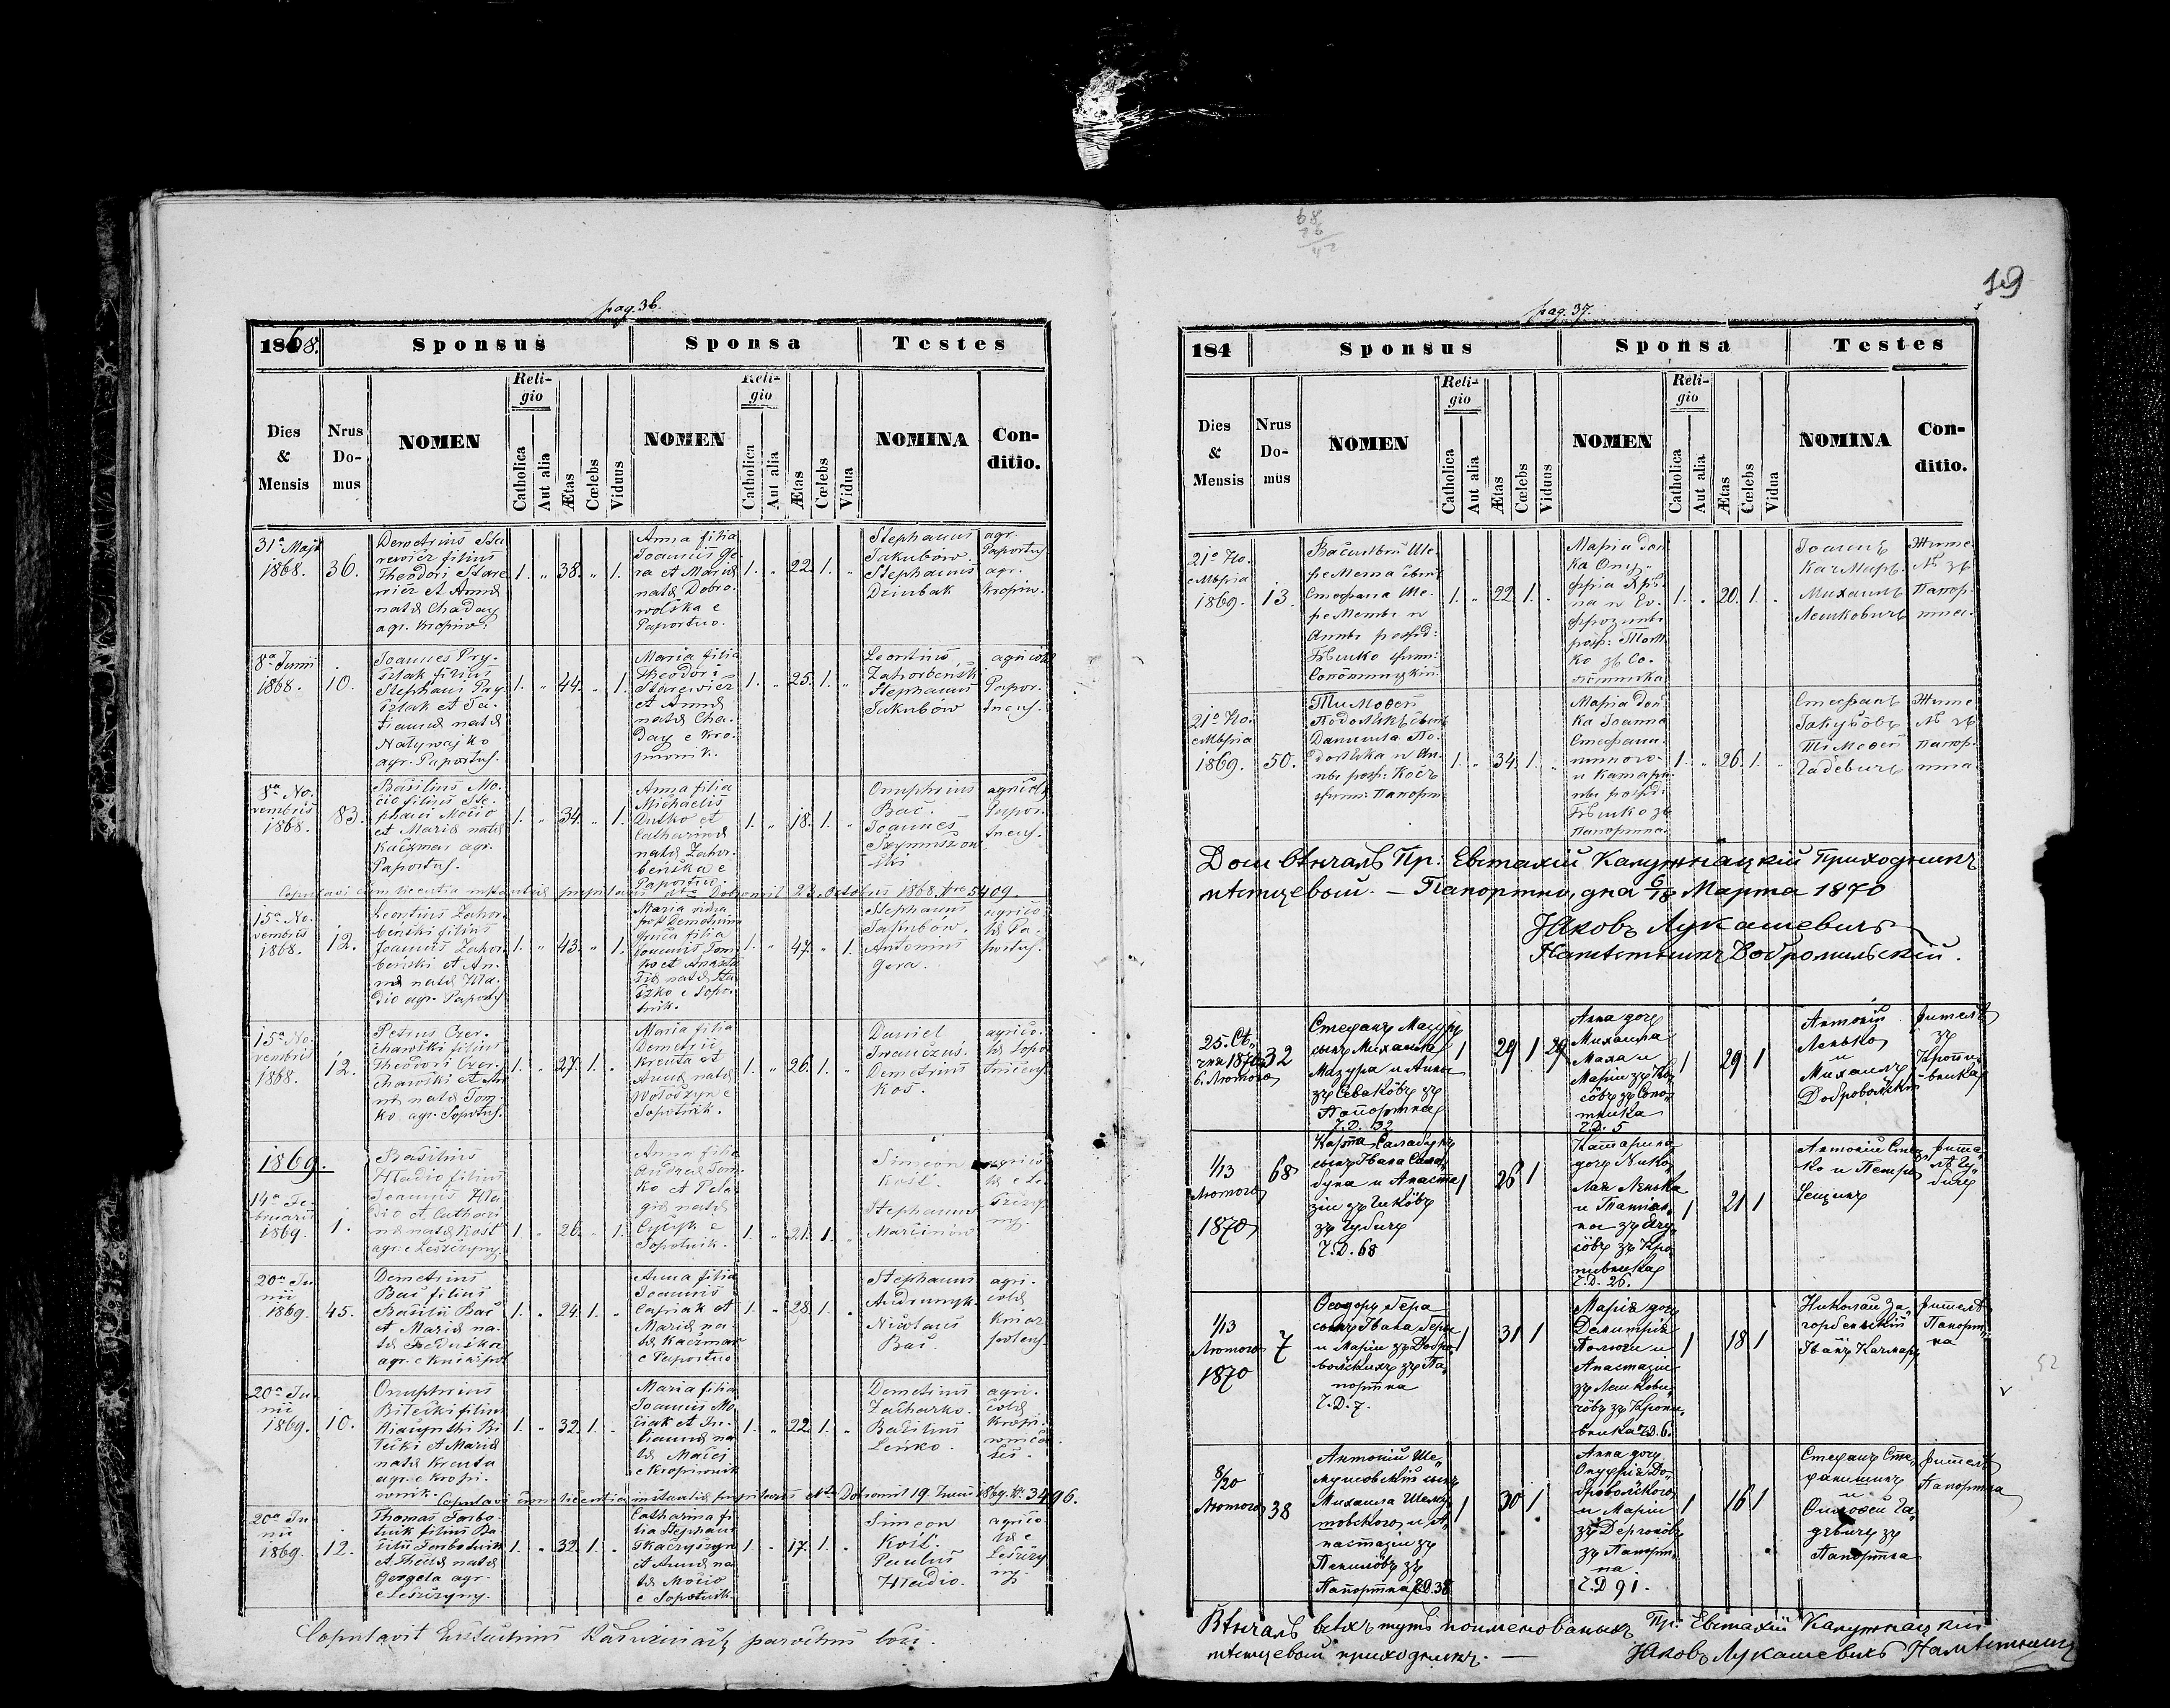 68
26
42
19
pag. 36.
1868.
Sponsus
Sponsa
Testes
Dies & Mensis
Nrus Domus
NOMEN
Religio
Catholica
Aut alia
Ætas
Cœlebs
Viduus
NOMEN
Religio
Catholica
Aut alia
Ætas
Cœlebs
Vidua
NOMINA
Conditio.
31a Maji
1868.
36.
Demetrius Sta
rewicz filius
Theodori Stare
wicz et Annæ
natæ Chaday
agr. Kropiw.
1. „ 38. „ 1.
Anna filia
Joannis Ge
ra et Mariæ
natæ Dobro
wolska e
Paportno.
1. „ 22. 1. „
Stephanus
Jakubów.
Stephanus
Dziubak
agr.
Paportn.
agr.
Kropiw.
8a Junii
1868.
10.
Joannes Pry-
sztak filius
Stephani Pry
sztak et Ta-
tiannæ natæ
Nalywajko
agr. Paportn.
1. „ 44. „ 1.
Maria filia
Theodori
Starewicz
et Annæ
natæ Cha-
day e Kro-
piwnik.
1. „ 25. 1. „
Leontius
Zahorbeńsk
Stephanus
Jakubów
agricolæ
Papor-
tnens.
8a No-
vembris
1868.
83.
Basilius Mo-
cio filius Ste-
phani Mocio
et Mariæ natæ
Kaczmar agr.
Paportn.
1. „ 34. „ 1.
Anna filia
Michaelis
Dutko et
Catharinæ
natæ Zahor-
beńska e
Paportno.
1. „ 18. 1. „
Onuphrius
Bac.
Joannes
Szymuszow
ski
agricolæ
Papor-
tnens.
Copulavi cum licentia Dobromil 23. Octobris 1868. Nro 5409
15a No-
vembris
1868.
12.
Leontius Zahor-
beński filius
Joannis Zahor-
beński et An-
næ natæ Hla-
dio agr. Paportn.
1. „ 43. „ 1.
Maria vidua
post Demetrium
filia
Joannis Tom-
ko et Anasta
siæ natæ
e Sopo-
tnik.
1. „ 47. „ 1.
Stephanus
Jakubów.
Antonius
Gera.
agrico-
læ Pa-
portn.
15a No-
vembris
1868.
12.
Petrus Czer-
chawski filius
Theodori Czer-
chawski et An
næ natæ Tom-
ko agr. Sopotn.
1. „ 27. 1. „
Maria filia
Demetrii
Krenta et
Annæ natæ
Wołoszyn e
Sopotnik.
1. „ 26. 1. „
Daniel
Iwanczus.
Demetrius
Kos.
agrico-
læ Sopo
tnicens.
1869.
14a Fe-
bruarii
1869.
1.
Basilius
Hladio filius
Joannis Hla-
dio et Cathari
næ natæ Kost
agr. e Leszczyny.
1. „ 26. „ 1.
Anna filia
Andreæ Tom-
ko et Pela-
giæ natæ
Cycyk e
Sopotnik.
1. „ 21. 1. „
Simeon
Kość.
Stephanus
Marcinów
agrico-
læ e Le
szczy
ny.
20a Ju-
nii
1869.
45.
Demetrius
Bac filius
Basilii Bac
et Mariæ na-
tæ Feduśka
agr. e Kniażpol
1. „ 24. 1. „
Anna filia
Joannis
Capiak et
Mariæ na-
tæ Kaczmar
e Paportno
1. „ 28. 1. „
Stephanus
Andrunyk.
Nicolaus
Bac.
agri-
colæ
Kniaż
polens.
20a Ju-
nii
1869.
10.
Onuphrius
Bilecki filius
Hiacynthi Bi
lecki et Mariæ
natæ Krenta
agr. e Kropi-
wnik.
1. „ 32. 1. „
Maria filia
Joannis Mo-
ciak et Ju-
liannæ na
tæ Maciej
e Kropiwnik
1. „ 22. 1. „
Demetrius
Zacharko.
Basilius
Leńko.
agri-
colæ
Kropi-
Copulavi cum licentia Dobromil 19. Junii 1869. Nr. 3496.
20a Ju-
nii
1869.
12.
Thomas Torbo
tnik filius Ba
silii Torbotnik
et Theclæ natæ
Gergela agr.
e Leszczyny.
1. „ 32. 1. „
Catharina fi-
lia Stephani
Tkaczyszyn
et Annæ na-
tæ Mocio
e Sopotnik.
1. „ 17. 1. „
Simeon
Kość.
Paulus
Hladio.
agrico-
læ e
Leszczy
ny.
Copulavit Eustachius Kałużniacki parochus loci.
pag. 37.
184
Sponsus
Sponsa
Testes
Dies & Mensis
Nrus Domus
NOMEN
Religio
Catholica
Aut alia
Ætas
Cœlebs
Viduus
NOMEN
Religio
Catholica
Aut alia
Ætas
Cœlebs
Vidua
NOMINA
Conditio.
21о Но-
ембрія
1869.
13.
Василій Ше-
ремета сынъ
Стефана Ше-
реметы и
Анны рожд:
Бѣшко
1. „ 22. 1. „
Марія доч
ка Ону-
фрія
на и Ев-
фрозины
рож: Том
ко зъ Со-
потника
1. „ 20. 1. „
Іоаннъ
Качмаръ.
Михаилъ
Лешковичъ
Жите-
лѣ зъ
Папор-
тна.
21о Но-
ембрія
1869.
50.
Тимофей
Подолякъ сынъ
Даниила По-
доляка и Ан-
ны рож: Косъ
Папорт
1. „ 34. 1. „
Марія доч
ка Іоанна
Стефани-
шиного
и Катари
ны рожд:
Бѣшко зъ
Папортна.
1. „ 26. 1. „
Стефанъ
Якубôвъ
Тимофей
Гадевичъ
Жите-
лѣ зъ
Папор-
тна.
Пр: Евстахій Калужняцкій Приходникъ
мѣстцевый. — Папортно, дня 6/18 Марта 1870
Яковъ Лукашевичъ
Намѣстникъ Добромильскій.
25. Сѣ-
чня 1870
6. Лютого
32
Стефанъ Мазуръ
сынъ Михаила
Мазура и Анны
зъ Севакôвъ зъ
Папортна
Ч.Д. 32
1 29 1 29
Анна дочь
Михаила
Маха и
Маріи зъ Ко-
сôвъ зъ Сопо-
тника
Ч.Д. 5
1 29 1
Антоній
Ленько
и
Михаилъ
Добровольскій
жителѣ
зъ
Кропи-
вника
1/13
Лютого
1870
68
Саладукъ
сынъ Ивана Сала-
дука и Анаста
зіи зъ
Ч.Д. 68
1 26 1
Катарина
дочь Нико-
лая Ленька
и Татіан-
ны зъ
зъ Кро-
пивника
Ч.Д. 26.
1 21 1
Антоній
ко и Петръ
1/13
Лютого
1870
7
Ѳеодоръ Гера
сынъ Ивана Геры
и Маріи зъ Добро-
вольскихъ зъ Па-
портна
Ч.Д. 7.
1 31 1
Марія дочь
Димитрія
и
Анастазіи
зъ Лешкови-
чôвъ зъ Кропи-
вника Ч.Д. 6.
1 18 1
Николай За-
горбенскій
Иванъ Качмаръ
жителѣ
Папорт-
на
8/20
Лютого
38
Антоній Ше-
мушовскій сынъ
Михаила Шему-
шовского и А-
настазіи зъ
зъ
Папортна Ч.Д. 38
1 30 1
Анна дочь
Онуфрія До-
бровольского
и Маріи
зъ
зъ Папорт-
на.
Ч.Д 91.
1 16 1
Стефанъ Сте-
фанишинъ
и
Тимофей Га-
девичъ зъ
Папортна
жителѣ
Папортна
52
Вѣнчалъ всѣхъ тутъ поименованыхъ Пр: Евстахій Калужняцкій
мѣстцевый приходникъ. —
Яковъ Лукашевичъ Намѣстникъ